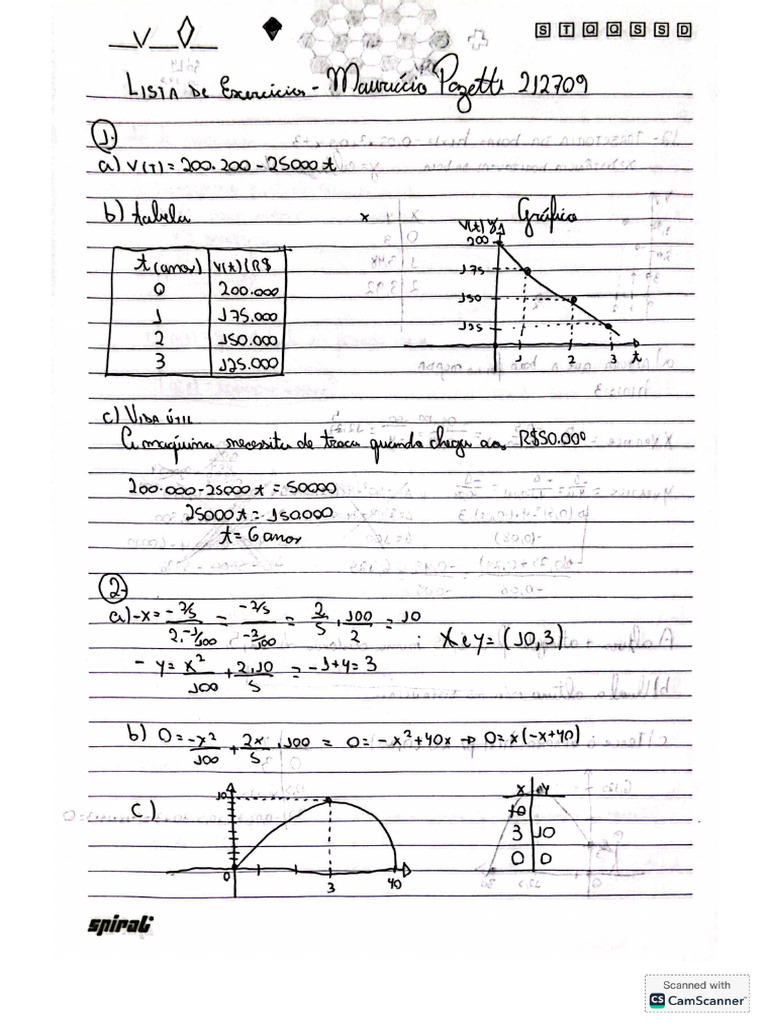 V
S T Q Q S S D
LISTA DE Exercícios - Maurício Pozetti 212709
1.
a) V(T) = 200.200 - 25000 t
b) tabela
x
Gráfico
t (anos) V(t) (R$
0 200.000
1 175.000
2 150.000
3 125.000
V(t) y
200
175
150
125
1 2 3 t
c) VIDA ÚTIL
A maquina necessita de troca quando chega aos R$50.000
200.000 - 25000 t = 50000
25000 t = 150.000
t = 6 anos
2-
a) - x = -2/5 / 2.-1/100 = -2/5 / -2/100 = 2/5 . 100/2 = 10
: X e y = (10,3)
- y = x²/100 + 2.10/5 = -1+4 = 3
b) 0 = -x²/100 + 2x/5 . 100 = 0 = -x² + 40x → 0 = x(-x+40)
c)
10
0 3 40
x y
10
3 10
0 0
spiral
Scanned with
CS CamScanner